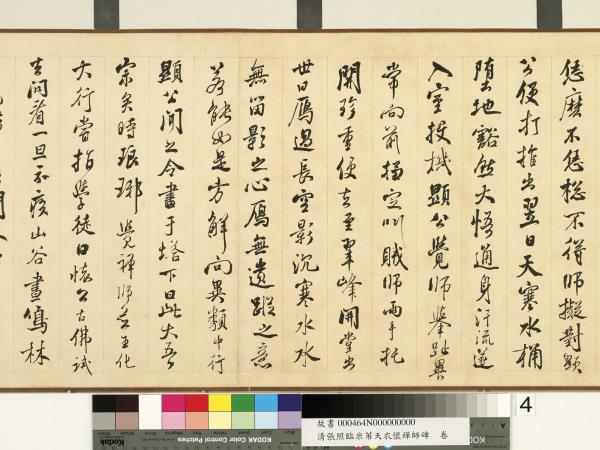 恁麽不恁麽總不得師擬對顯
公便打推出翌日天寒水桶
墮地豁然大悟通身汗流遂
入室投機顯公覺師舉趾異
常向前搊定叫賊師兩手托
開珍重便去至翠峰開堂出
世曰鴈過長空影沉寒水水
無留影之心鴈無遺蹤之意
若能如是方解向異類中行
顯公聞之令書于塔下曰此大吾
宗矣時琅琊覺禪師居王化
大行嘗指學徒曰懷公古佛試
去問看一旦不疾山谷晝鳴林
4
故書 000464N000000000
清張照臨米芾天衣懷禪師碑 卷
KODAK Color Control Patches
KODAK